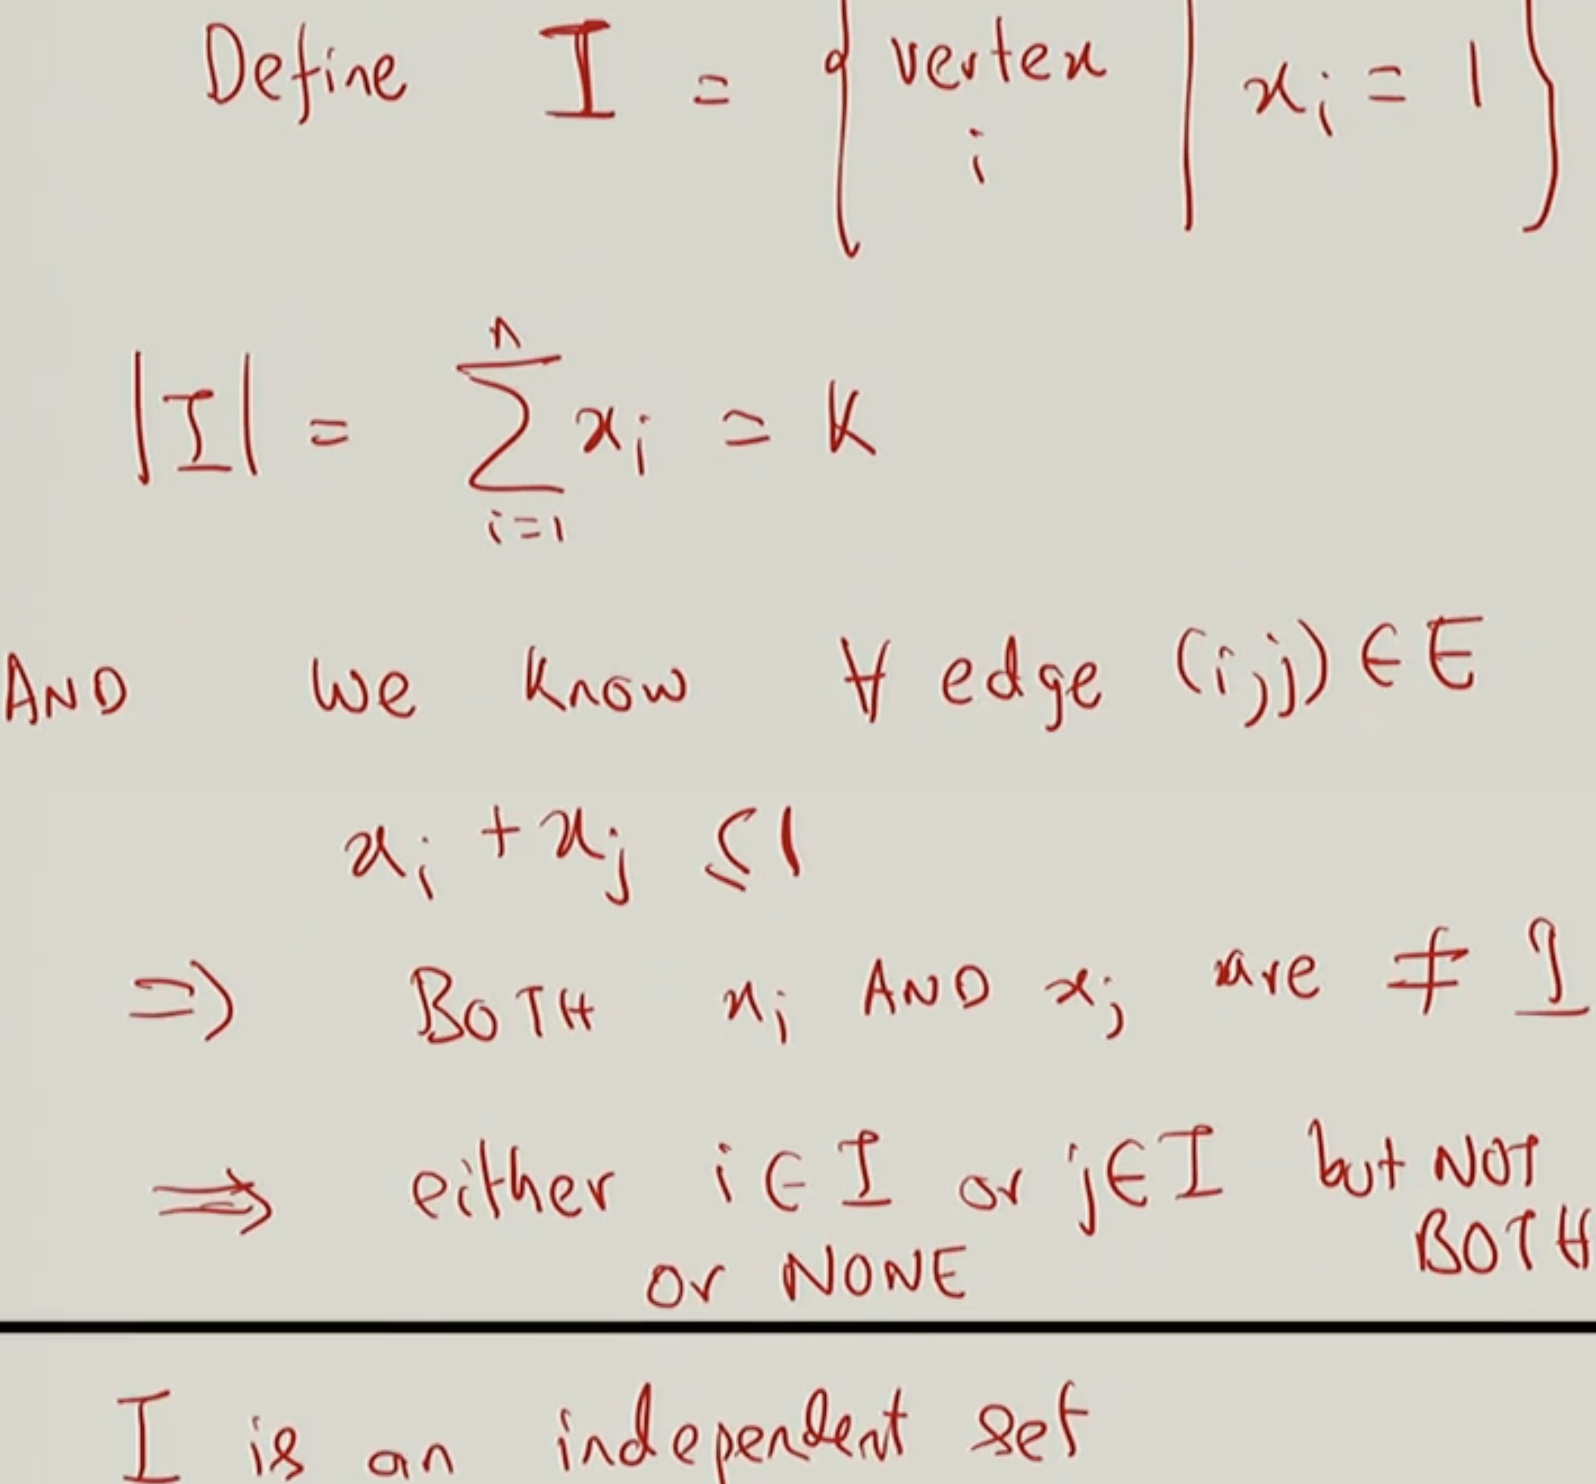 Define I = { vertex i | xi = 1 }
|I| = ∑ i=1 n xi = K
AND we know ∀ edge (i,j) ∈ E
xi + xj ≤ 1
=) BOTH xi AND xj are ≠ 1
⇒ either i ∈ I or j ∈ I but NOT BOTH
or NONE
I is an independent set